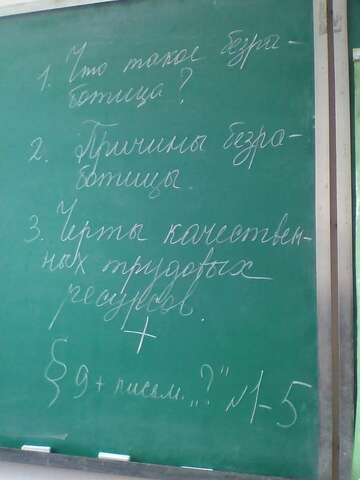 1. Что такое безра-
ботица?
2. Причины безра-
ботицы.
3. Черты качествен-
ных трудовых
ресурсов.
+
§ 9 + письм. „?" №1-5